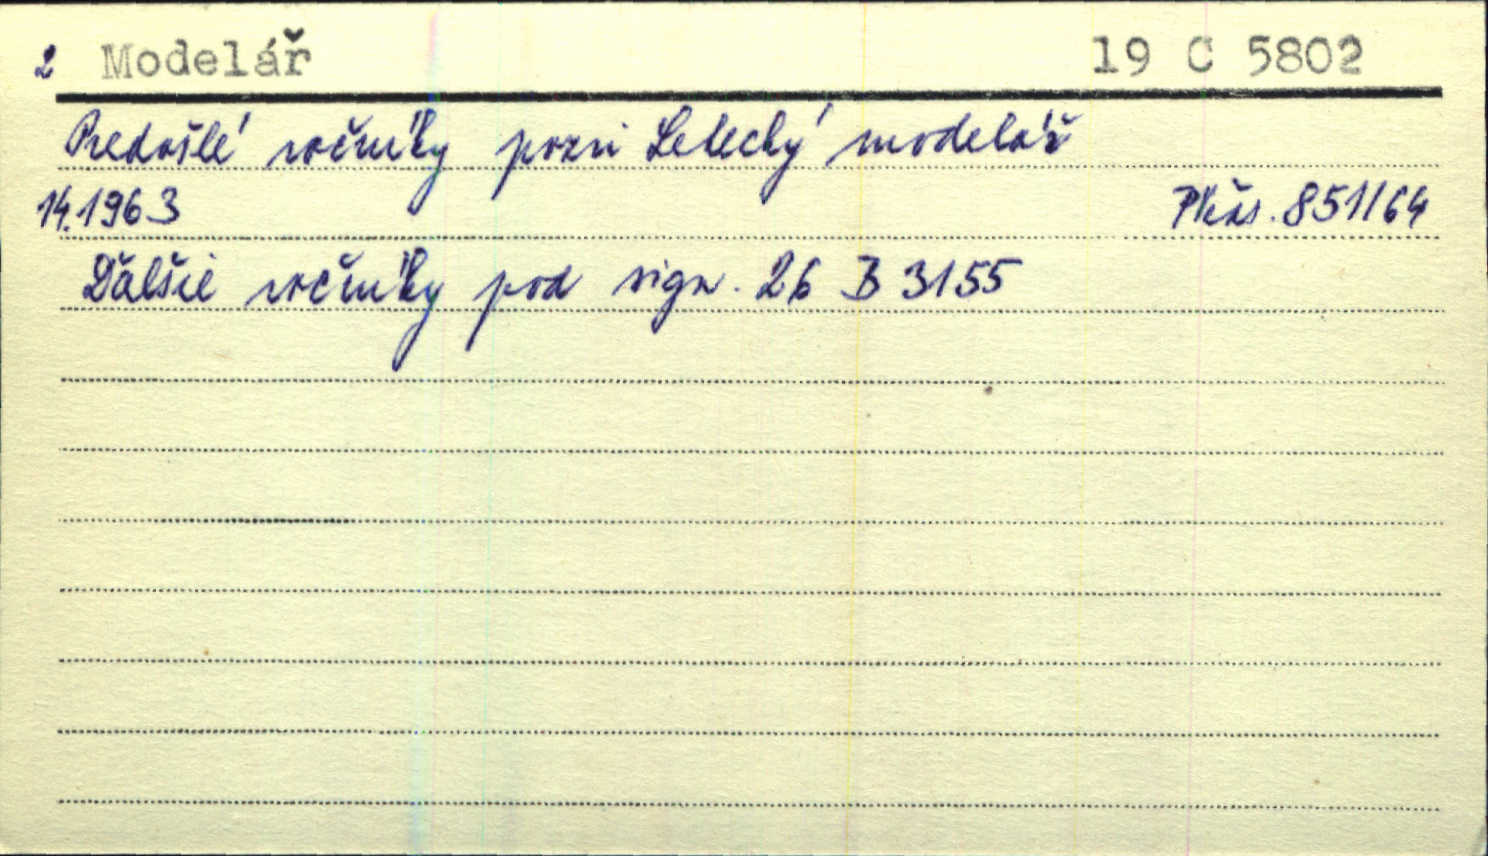 2 Modelář 19 C 5802
Predošlé ročníky pozri Letecký modelář
14.1963 851/64
Ďalšie ročníky pod sign. 26 B 3155